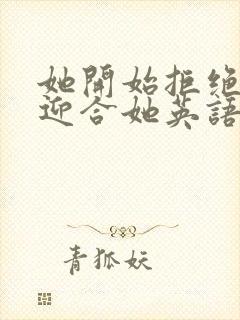 她開始拒絕
迎合她英語
青狐妖